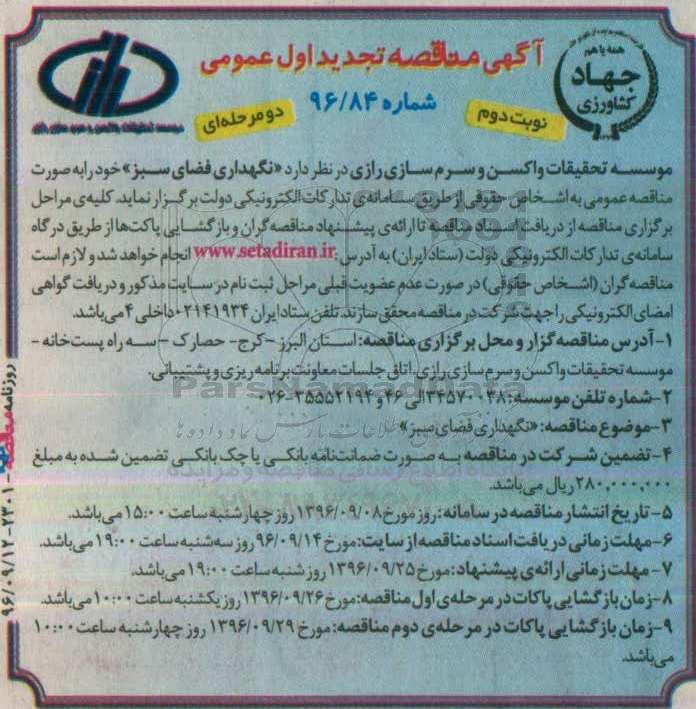 آگهی مناقصه تجدید اول عمومی
همه با هم
جهاد
کشاورزی
شماره ۹۶/۸۴
نوبت دوم
دو مرحله‌ای
موسسه تحقیقات واکسن و سرم سازی رازی در نظر دارد «نگهداری فضای سبز» خود را به صورت
مناقصه عمومی به اشخاص حقوقی از طریق سامانه‌ی تدارکات الکترونیکی دولت برگزار نماید. کلیه‌ی مراحل
برگزاری مناقصه از دریافت اسناد مناقصه تا ارائه‌ی پیشنهاد مناقصه گران و بازگشایی پاکت‌ها از طریق درگاه
سامانه‌ی تدارکات الکترونیکی دولت (ستاد ایران) به آدرس: www.setadiran.ir انجام خواهد شد و لازم است
مناقصه گران (اشخاص حقوقی) در صورت عدم عضویت قبلی مراحل ثبت نام در سایت مذکور و دریافت گواهی
امضای الکترونیکی را جهت شرکت در مناقصه محقق سازند. تلفن ستاد ایران ۰۲۱۴۱۹۳۴ داخلی ۴ می‌باشد.
۱- آدرس مناقصه گزار و محل برگزاری مناقصه: استان البرز - کرج - حصارک - سه راه پست‌خانه -
موسسه تحقیقات واکسن و سرم سازی رازی. اتاق جلسات معاونت برنامه ریزی و پشتیبانی.
۲- شماره تلفن موسسه: ۳۴۵۷۰۰۳۸ الی ۴۶ و ۳۵۵۵۲۱۹۴-۰۲۶
۳- موضوع مناقصه: «نگهداری فضای سبز»
۴- تضمین شرکت در مناقصه به صورت ضمانت‌نامه بانکی یا چک بانکی تضمین شده به مبلغ
۲۸۰,۰۰۰,۰۰۰ ریال می‌باشد.
۵- تاریخ انتشار مناقصه در سامانه: روز مورخ ۱۳۹۶/۰۹/۰۸ روز چهارشنبه ساعت ۱۵:۰۰ می‌باشد.
۶- مهلت زمانی دریافت اسناد مناقصه از سایت: مورخ ۹۶/۰۹/۱۴ روز سه‌شنبه ساعت ۱۹:۰۰ می‌باشد.
۷- مهلت زمانی ارائه‌ی پیشنهاد: مورخ ۱۳۹۶/۰۹/۲۵ روز شنبه ساعت ۱۹:۰۰ می‌باشد.
۸- زمان بازگشایی پاکات در مرحله‌ی اول مناقصه: مورخ ۱۳۹۶/۰۹/۲۶ روز یکشنبه ساعت ۱۰:۰۰ می‌باشد.
۹- زمان بازگشایی پاکات در مرحله‌ی دوم مناقصه: مورخ ۱۳۹۶/۰۹/۲۹ روز چهارشنبه ساعت ۱۰:۰۰
می‌باشد.
روزنامه مناقصه - ۲۳۰۱ - ۹۶/۰۹/۱۲
ParsNamadData